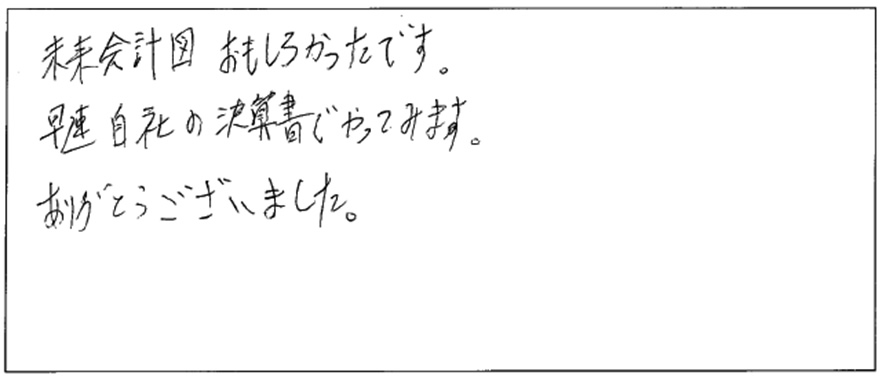 未来会計図 おもしろかったです。
早速自社の決算書でやってみます。
ありがとうございました。